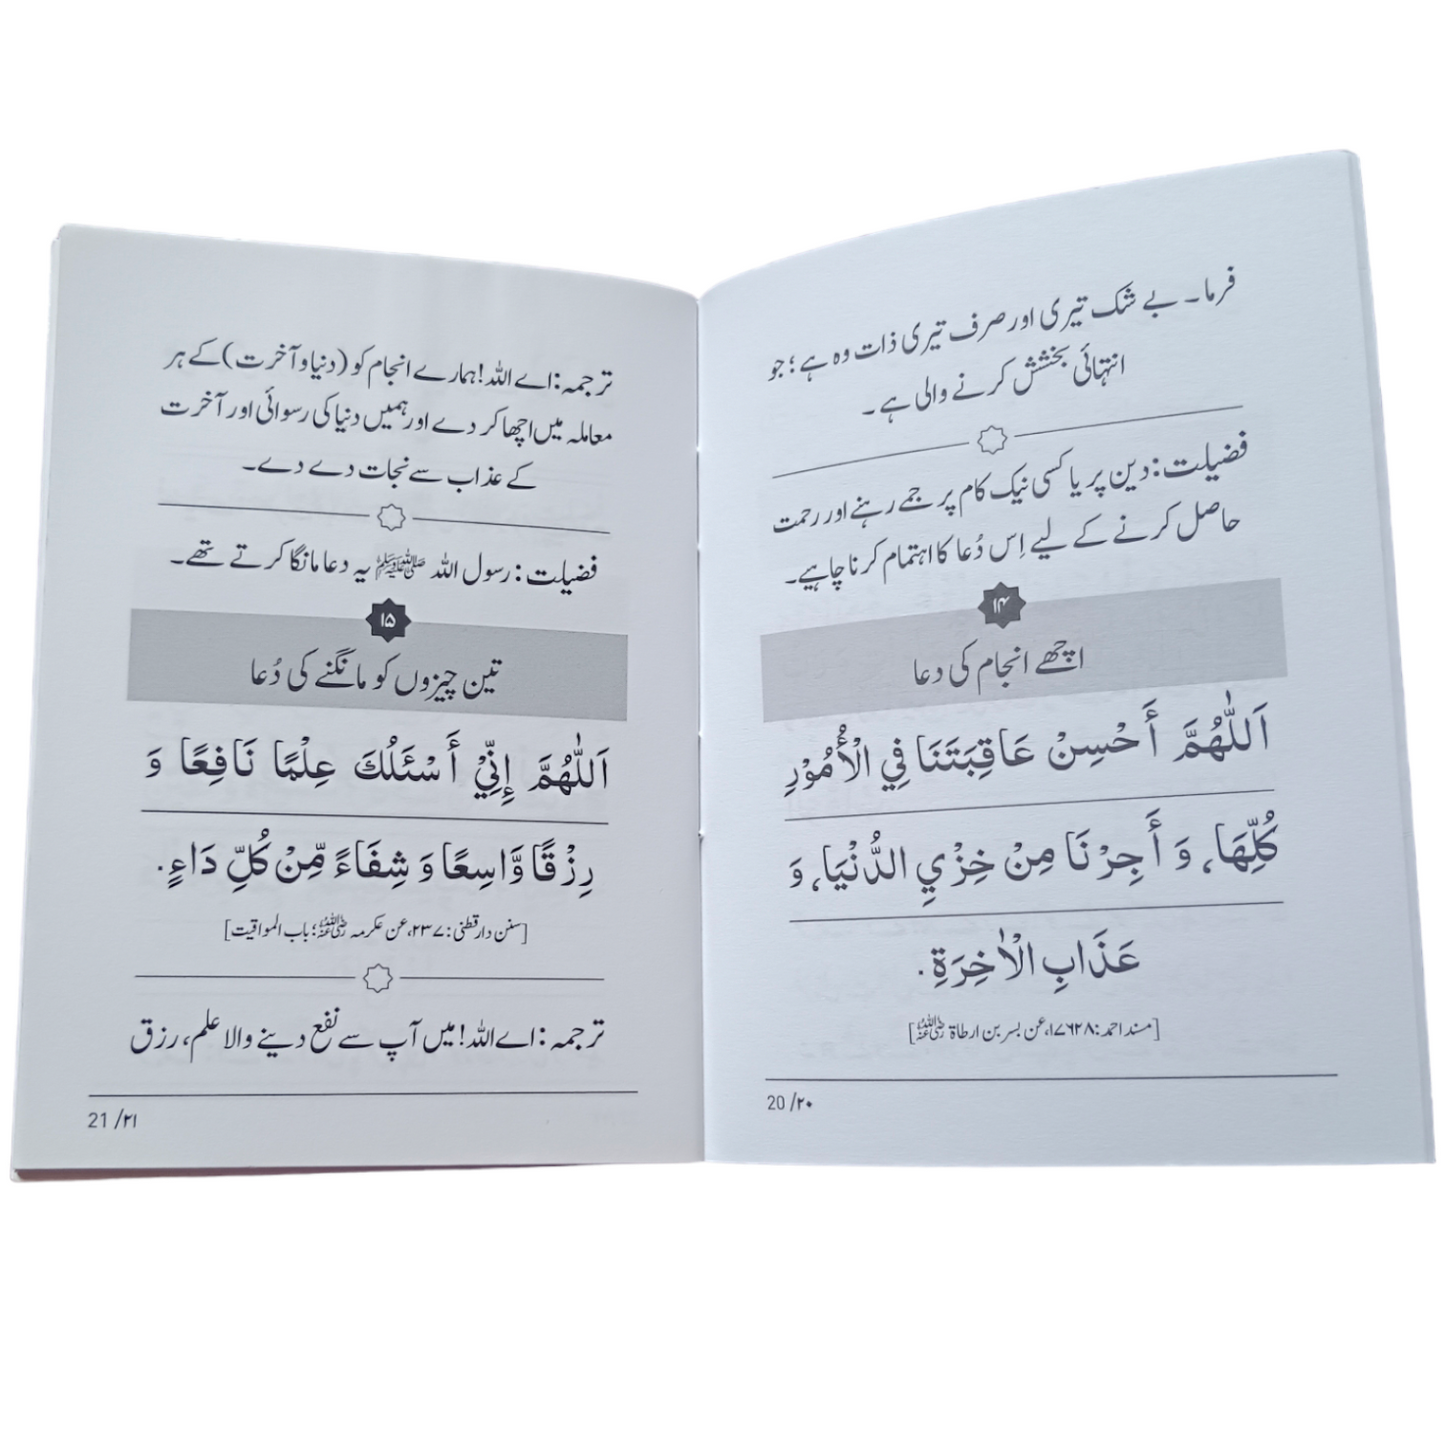 فرما۔ بے شک تیری اور صرف تیری ذات وہ ہے؛ جو
انتہائی بخشش کرنے والی ہے۔
فضیلت: دین پر یا کسی نیک کام پر جمے رہنے اور رحمت
حاصل کرنے کے لیے اِس دُعا کا اہتمام کرنا چاہیے۔
۱۴
اچھے انجام کی دعا
اَللّٰهُمَّ أَحْسِنْ عَاقِبَتَنَا فِي الْأُمُوْرِ
كُلِّهَا، وَ أَجِرْنَا مِنْ خِزْيِ الدُّنْيَا، وَ
عَذَابِ الْاٰخِرَةِ.
[مسند احمد: ۱۷۶۲۸، عن بسر بن ارطاۃ رضی اللہ عنہ]
20 /۲۰
ترجمہ: اے اللہ! ہمارے انجام کو (دنیا و آخرت) کے ہر
معاملہ میں اچھا کر دے اور ہمیں دنیا کی رسوائی اور آخرت
کے عذاب سے نجات دے دے۔
فضیلت: رسول اللہ ﷺ یہ دعا مانگا کرتے تھے۔
۱۵
تین چیزوں کو مانگنے کی دُعا
اَللّٰهُمَّ إِنِّيْ أَسْئَلُكَ عِلْمًا نَافِعًا وَ
رِزْقًا وَّاسِعًا وَ شِفَاءً مِّنْ كُلِّ دَاءٍ.
[سنن دارقطنی: ۲۳۷، عن عکرمہ رضی اللہ عنہ؛ باب المواقیت]
ترجمہ: اے اللہ! میں آپ سے نفع دینے والا علم، رزق
21 /۲۱